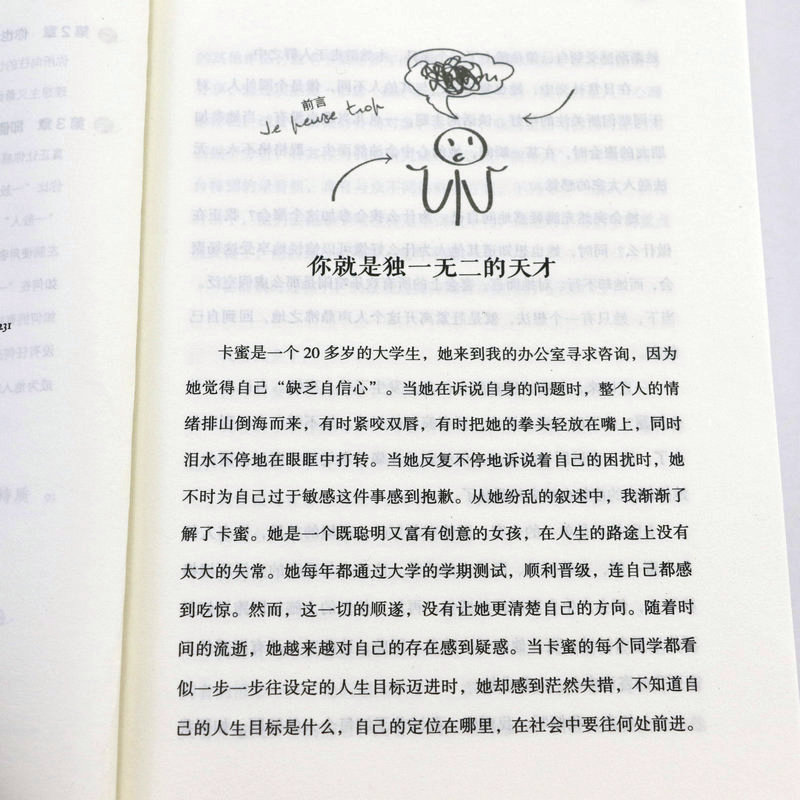 前言
Je pense trop
你就是独一无二的天才
231
卡蜜是一个 20 多岁的大学生，她来到我的办公室寻求咨询，因为
她觉得自己“缺乏自信心”。当她在诉说自身的问题时，整个人的情
绪排山倒海而来，有时紧咬双唇，有时把她的拳头轻放在嘴上，同时
泪水不停地在眼眶中打转。当她反复不停地诉说着自己的困扰时，她
不时为自己过于敏感这件事感到抱歉。从她纷乱的叙述中，我渐渐了
解了卡蜜。她是一个既聪明又富有创意的女孩，在人生的路途上没有
太大的失常。她每年都通过大学的学期测试，顺利晋级，连自己都感
到吃惊。然而，这一切的顺遂，没有让她更清楚自己的方向。随着时
间的流逝，她越来越对自己的存在感到疑惑。当卡蜜的每个同学都看
似一步一步往设定的人生目标迈进时，她却感到茫然失措，不知道自
己的人生目标是什么，自己的定位在哪里，在社会中要往何处前进。